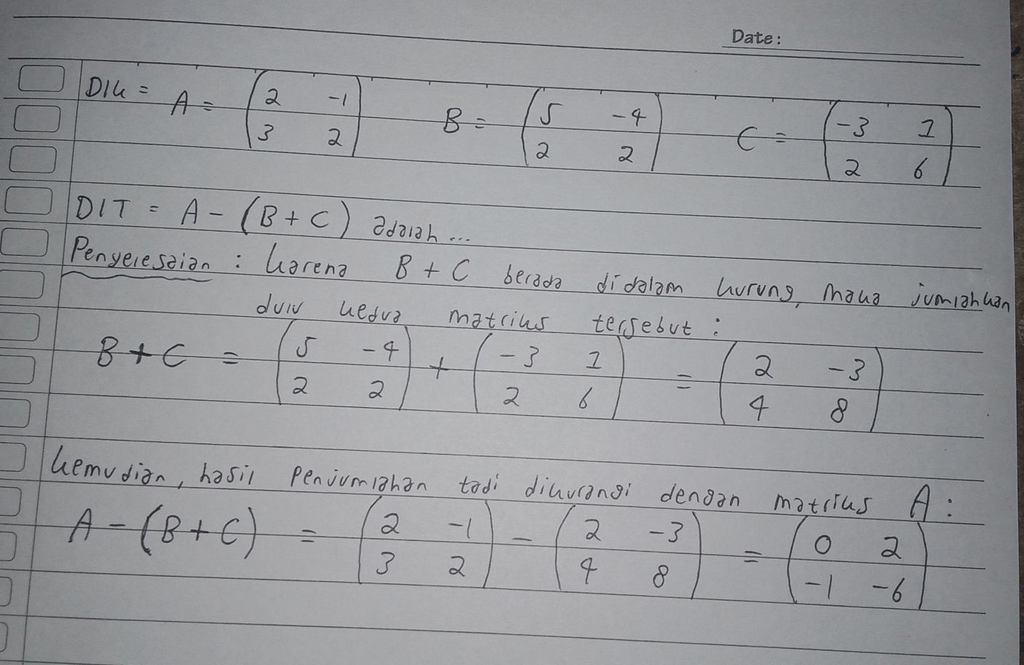 Date:
DIK = A = (2 -1 B = (5 -4 C = (-3 1
3 2) 2 2) 2 6)
DIT = A - (B + C) adalah ...
Penyelesaian : Karena B + C berada di dalam kurung, maka jumlahkan
dulu kedua matriks tersebut :
B + C = (5 -4 + (-3 1 = (2 -3
2 2) 2 6) 4 8)
Kemudian, hasil Penjumlahan tadi dikurangi dengan matriks A :
A - (B + C) = (2 -1 - (2 -3 = (0 2
3 2) 4 8) -1 -6)